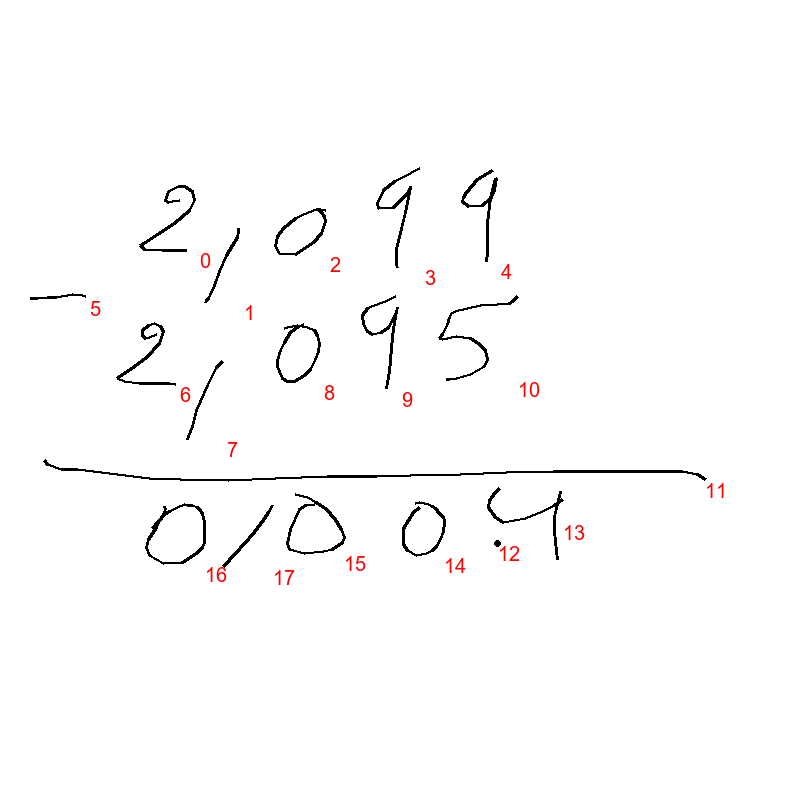 2,099
0 1 2 3 4
- 2,095
5 6 7 8 9 10
11
0,004
16 17 15 14 12 13